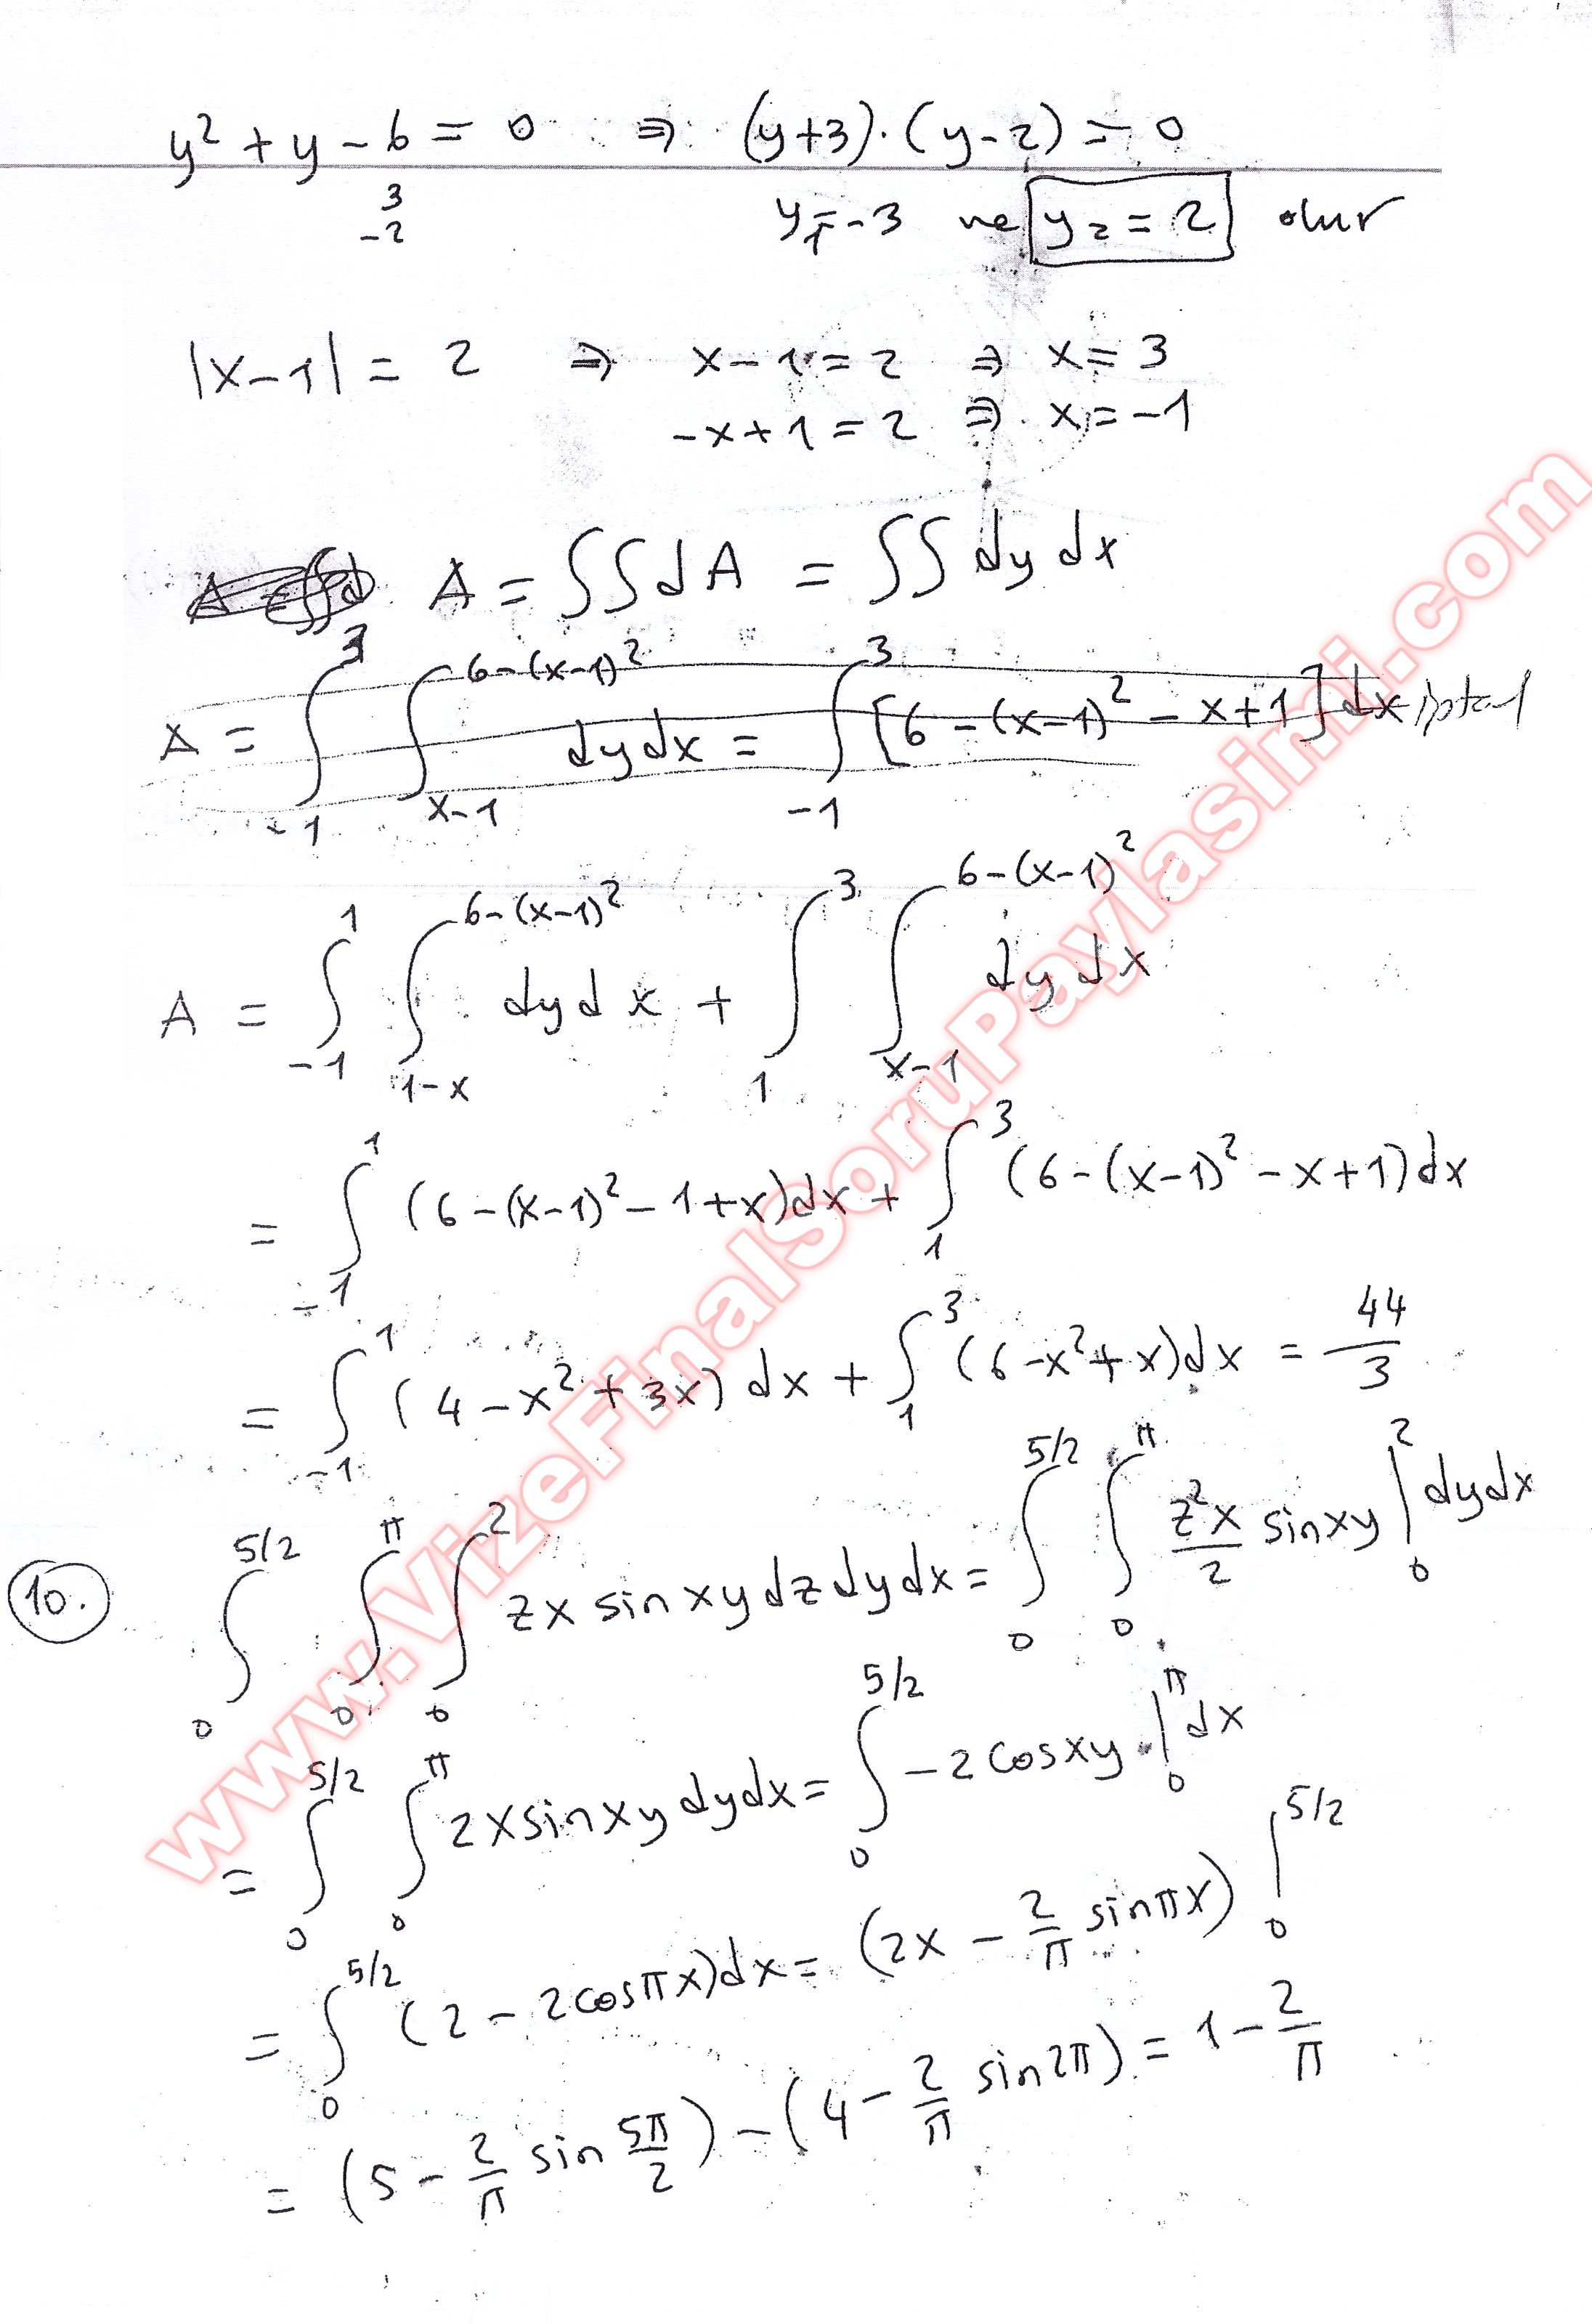 y² + y - 6 = 0 ⇒ (y+3)·(y-2) = 0
3
-2
y₁ = -3 ve y₂ = 2 olur
|x-1| = 2 ⇒ x-1 = 2 ⇒ x = 3
-x+1 = 2 ⇒ x = -1
A = ∫∫dA = ∫∫ dy dx
A = ∫_{-1}^{3} ∫_{x-1}^{6-(x-1)²} dy dx = ∫_{-1}^{3} [6-(x-1)² - x+1] dx iptal
A = ∫_{-1}^{1} ∫_{1-x}^{6-(x-1)²} dy dx + ∫_{1}^{3} ∫_{x-1}^{6-(x-1)²} dy dx
= ∫_{-1}^{1} (6-(x-1)² - 1+x)dx + ∫_{1}^{3} (6-(x-1)² - x+1)dx
= ∫_{-1}^{1} (4-x²+3x) dx + ∫_{1}^{3} (6-x²+x)dx = 44/3
10. ∫_{0}^{5/2} ∫_{0}^{π} ∫_{0}^{2} zx sin xy dz dy dx = ∫_{0}^{5/2} ∫_{0}^{π} z²x/2 sinxy |_{0}^{2} dy dx
= ∫_{0}^{5/2} ∫_{0}^{π} 2x sinxy dy dx = ∫_{0}^{5/2} -2 cosxy |_{0}^{π} dx
= ∫_{0}^{5/2} (2 - 2cosπx)dx = (2x - 2/π sinπx) |_{0}^{5/2}
= (5 - 2/π sin 5π/2) - (4 - 2/π sin2π) = 1 - 2/π
www.VizeFinalSoruPaylasimi.com